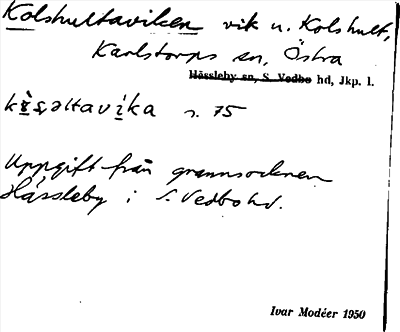 Kolshultaviken vik u. Kolshult,
Karlstorps sn, Östra
Hässleby sn, S. Vedbo hd, Jkp. l.
s. 75
Uppgift från grannsocknen
Hässleby i S. Vedbo hd.
Ivar Modéer 1950